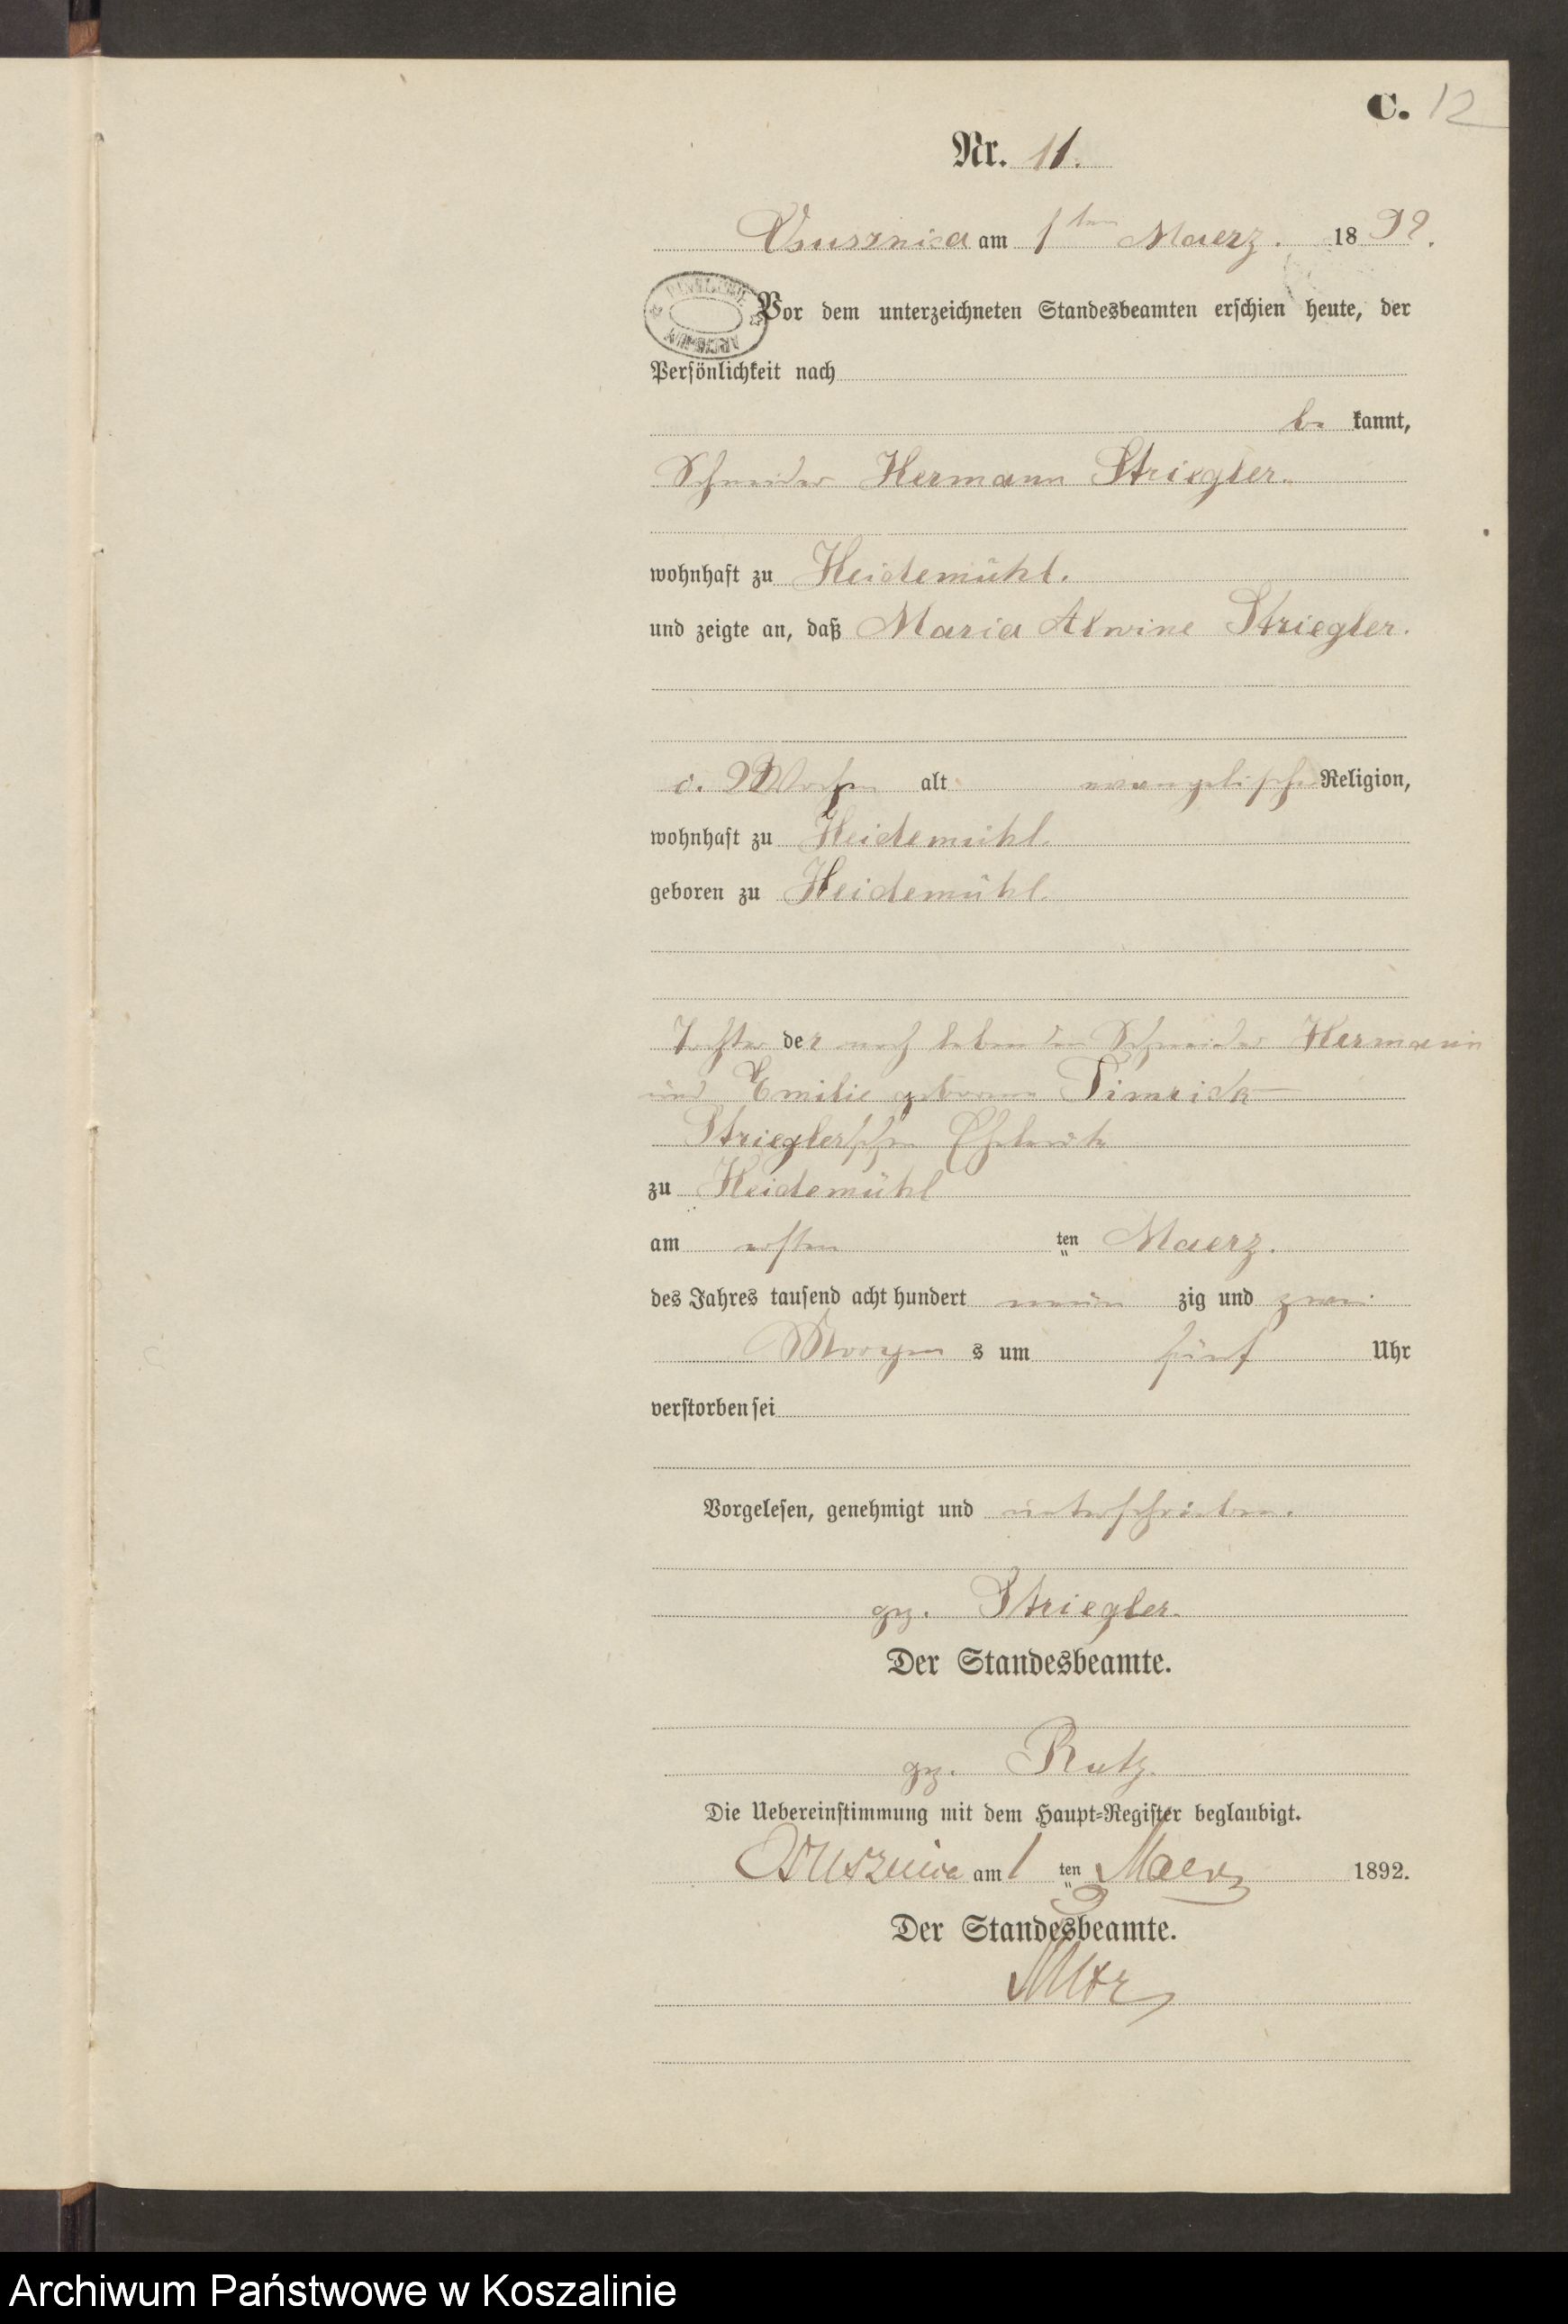 C. 12
Nr. 11.
am 1ten Maerz. 1892.
Vor dem unterzeichneten Standesbeamten erschien heute, der
Persönlichkeit nach
be kannt,
Schneider Hermann Striegler.
wohnhaft zu Heidemühl.
und zeigte an, daß Maria Alwine Striegler.
Wochen alt evangelischer Religion,
wohnhaft zu Heidemühl.
geboren zu Heidemühl.
Tochter der noch lebenden Schneider Hermann
und Emilie geborene
Strieglerschen Eheleute
zu Heidemühl
am ersten ten Maerz.
des Jahres tausend acht hundert neun zig und zwei
Morgens um fünf Uhr
verstorben sei
Vorgelesen, genehmigt und unterschrieben.
gez. Striegler.
Der Standesbeamte.
gez. Rutz.
Die Uebereinstimmung mit dem Haupt-Register beglaubigt.
am 1 ten Maerz 1892.
Der Standesbeamte.
Archiwum Państwowe w Koszalinie